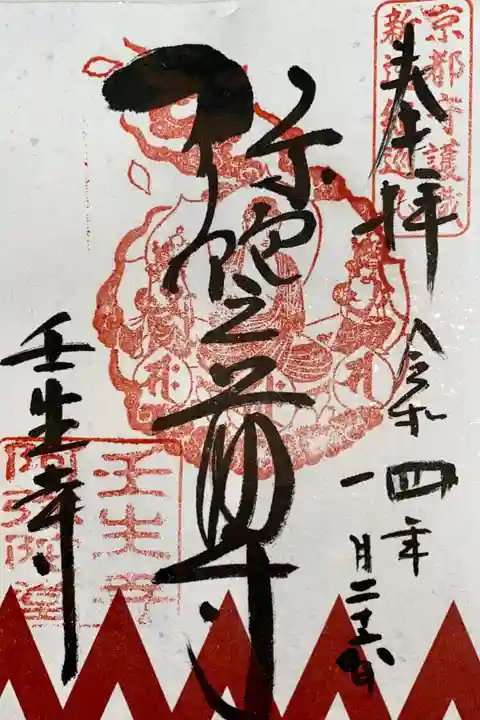 奉拝
令和四年
一月二十六日
京都守護職
新選組巡礼
弥陀三尊
壬生寺
壬生寺
阿弥陀堂